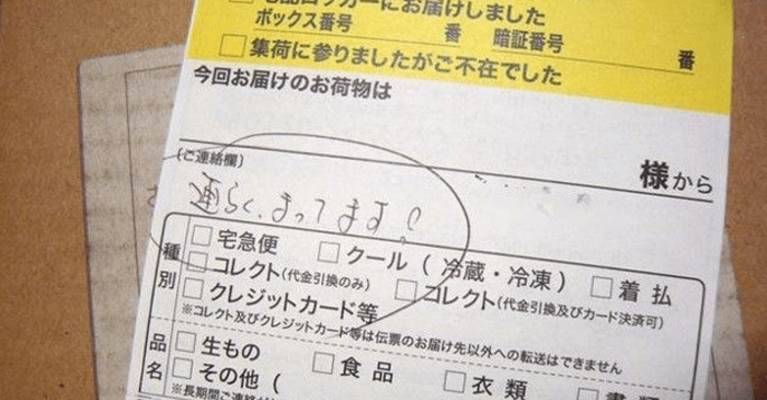 宅配ロッカーにお届けしました
ボックス番号 番 暗証番号 番
□集荷に参りましたがご不在でした
今回お届けのお荷物は
様から
(ご連絡欄)
連らく、まってます!
種別
□宅急便 □クール(冷蔵・冷凍) □着払
□コレクト(代金引換のみ) □コレクト(代金引換及びカード決済可)
□クレジットカード等
※コレクト及びクレジットカード等は伝票のお届け先以外への転送はできません
品名
□生もの □食品 □衣類 □書類
□その他(
※長期間ご連絡が